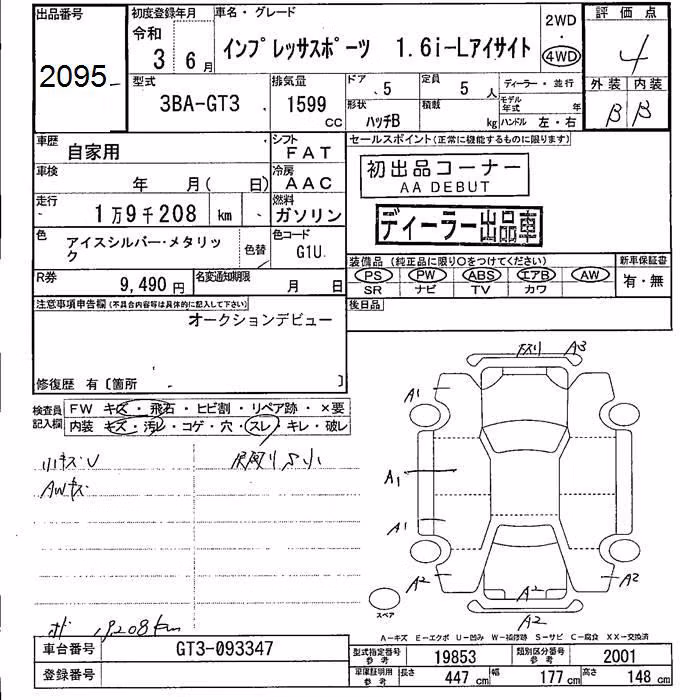 出品番号
2095
初度登録年月
令和
3 6月
車名・グレード
インプレッサスポーツ 1.6i-Lアイサイト
2WD
・
4WD
評価点
4
外装 内装
B B
型式
3BA-GT3
排気量
1599
CC
ドア 5
定員 5 人
形状
ハッチB
積載
kg
ディーラー・並行
モデル年式 年
ハンドル 左・右
車歴
自家用
シフト
FAT
車検
年 月( 日)
冷房
AAC
走行
1万9千208 km
燃料
ガソリン
色
アイスシルバー・メタリック
色替
色コード
G1U
R券
9,490円
名変通知期限
月 日
セールスポイント(正常に機能するものに限ります)
初出品コーナー
AA DEBUT
ディーラー出品車
装備品(純正品に限り○をつけてください)
PS PW ABS エアB AW
SR ナビ TV カワ
新車保証書
有・無
後日品
注意事項申告欄(不具合内容等は具体的に記入して下さい)
オークションデビュー
修復歴 有〔箇所 〕
検査員記入欄
FW キズ・飛石・ヒビ割・リペア跡・×要
内装 キズ・汚レ・コゲ・穴・スレ・キレ・破レ
小キズU
AWキズ
19208km
A3
A1
A1
A1
A2
A2
A2
A2
スペア
A-キズ E-エクボ U-凹み W-補修跡 S-サビ C-腐食 XX-交換済
車台番号
GT3-093347
登録番号
型式指定番号 参考
19853
類別区分番号 参考
2001
車庫証明用 参考
長さ 447 cm
幅 177 cm
高さ 148 cm